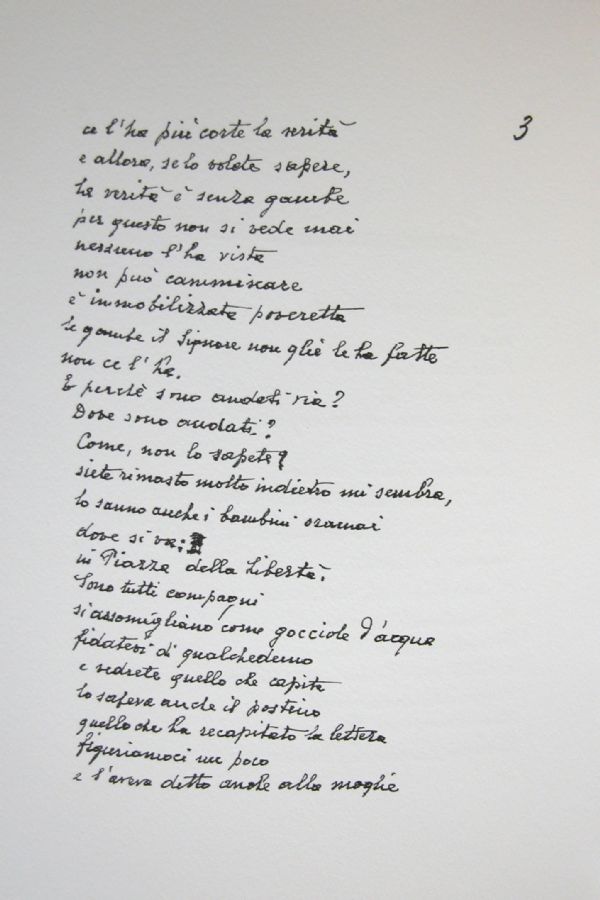 3
ce l'ha più corte la verità
e allora, se lo volete sapere,
la verità è senza gambe
per questo non si vede mai
nessuno l'ha vista
non può camminare
è immobilizzata poveretta
le gambe il Signore non gliè le ha fatte
non ce l'ha.
E perchè sono andati via?
Dove sono andati?
Come, non lo sapete?
siete rimasto molto indietro mi sembra,
lo sanno anche i bambini oramai
dove si va:
in Piazza della Libertà.
Sono tutti compagni
si assomigliano come gocciole d'acqua
fidatevi di qualcheduno
e vedrete quello che capita
lo sapeva anche il postino
quello che ha recapitato la lettera
figuriamoci un poco
e l'aveva detto anche alla moglie